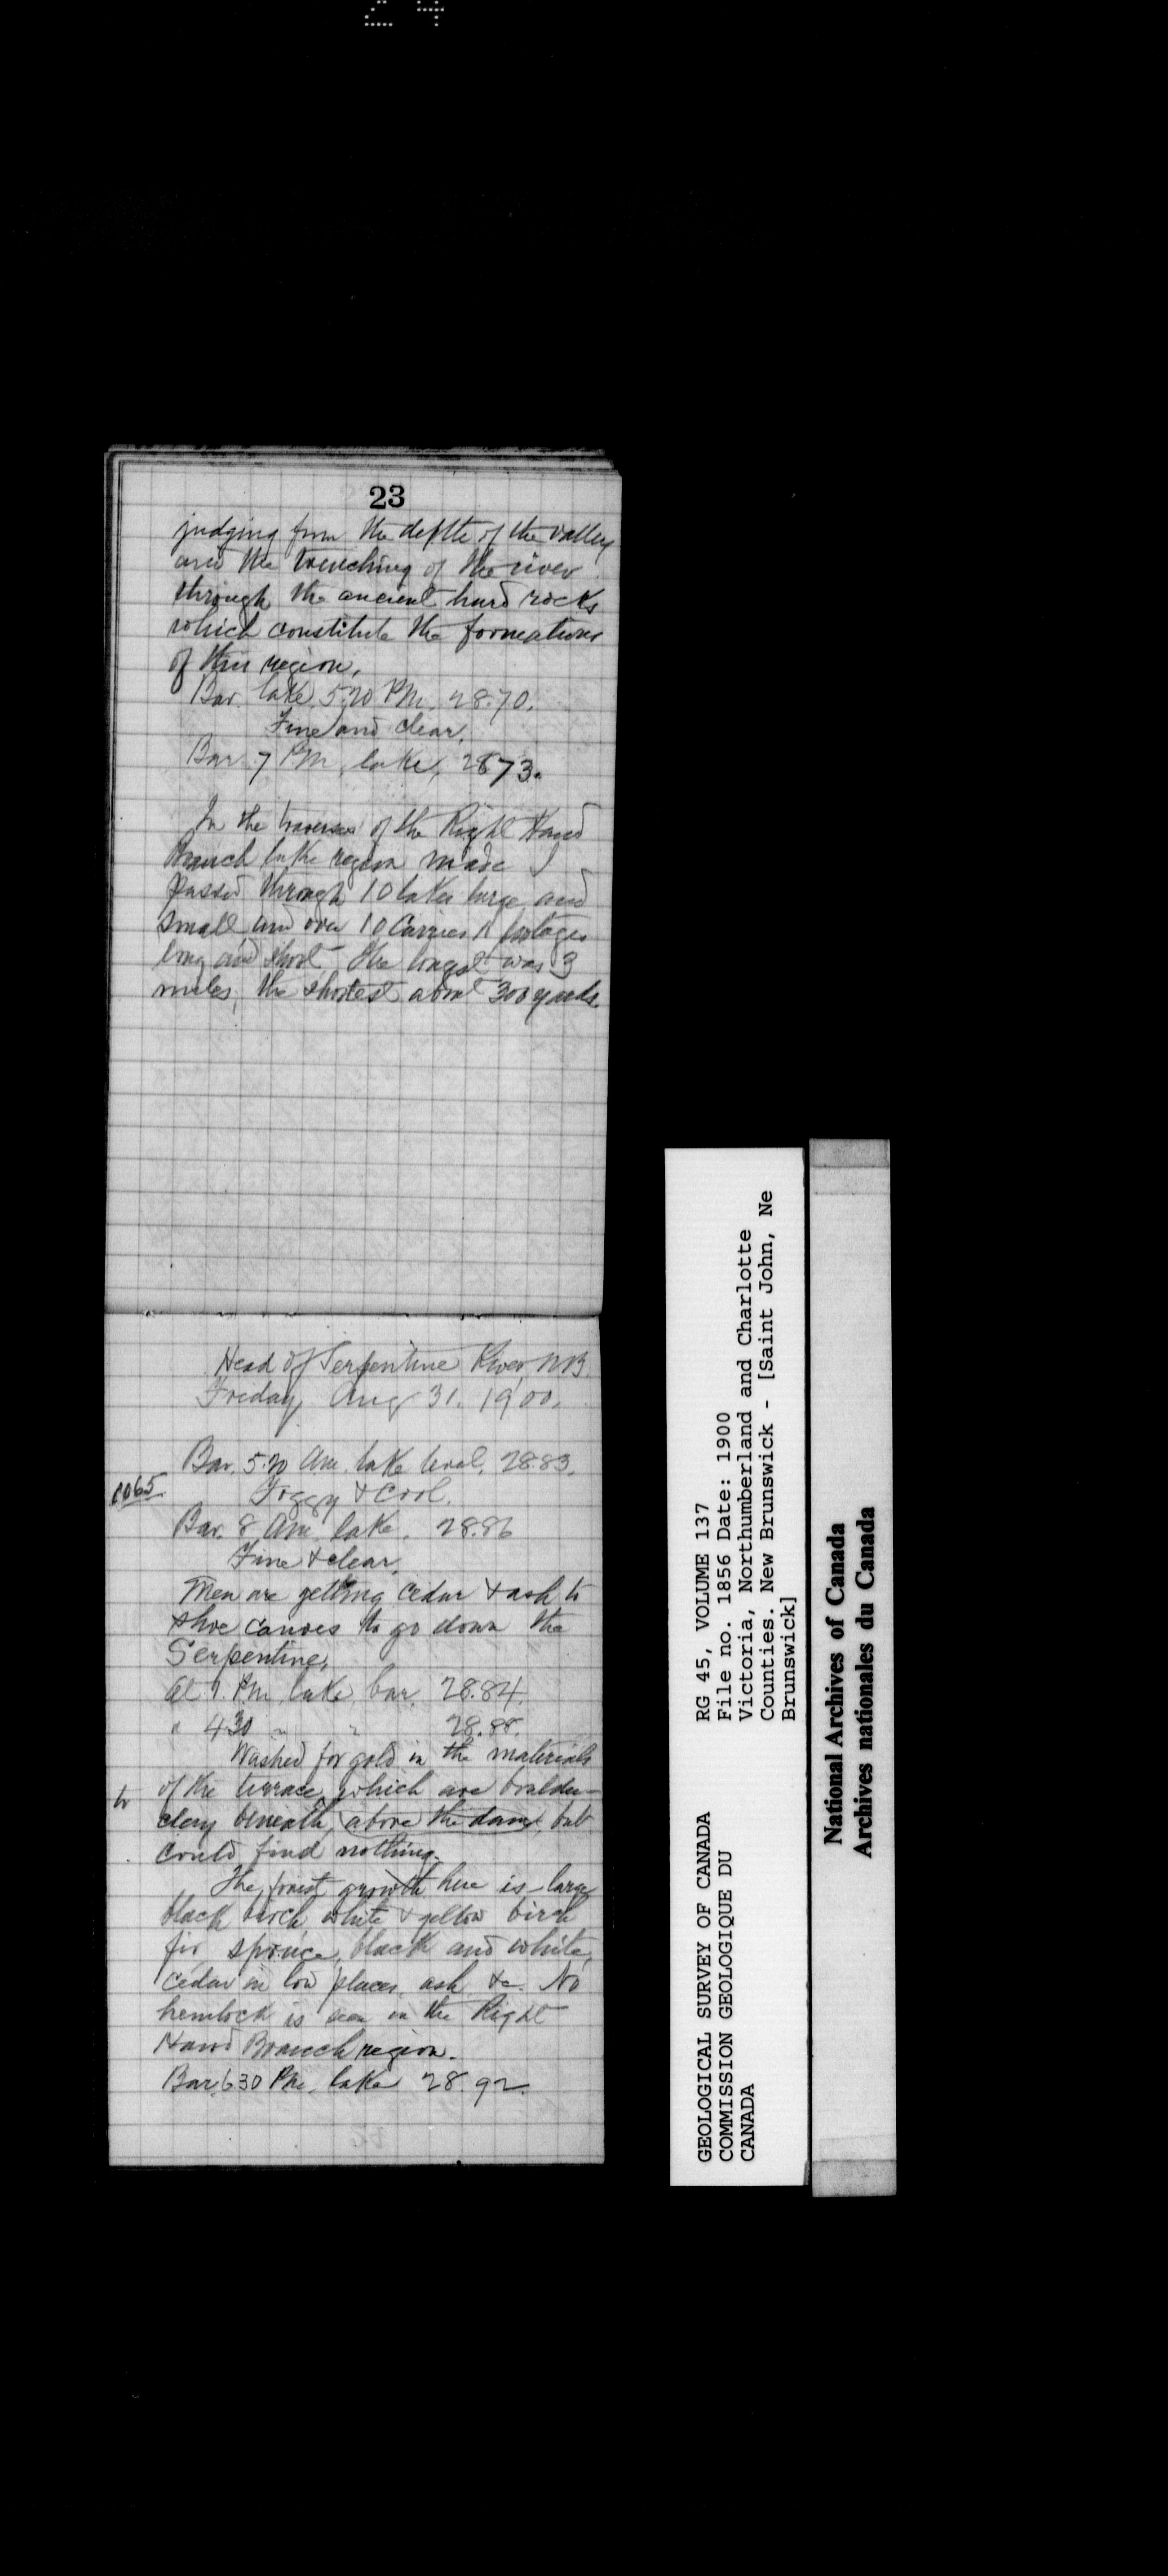 24
23
judging from the depth of the valley
and the trenching of the river
through the ancient hard rocks
which constitute the formations
of this region.
Bar. lake 5.20 PM. 28.70.
Fine and clear.
Bar 7 PM, lake, 2873.
In the traverse of the Right Hand
Branch lake region made I
passed through 10 lakes large and
small, and over 10 Carries portages
long and short the longest was 3
miles, the shortest about 300 yards.
Head of Serpentine River, N.B.
Friday, Aug 31. 1900.
Bar. 5.20 am. lake level. 28.83.
1065
Foggy & Cool.
Bar. 8 am. lake. 28.86
Fine & clear.
Men are getting cedar & ash to
shoe canoes to go down the
Serpentine.
At 1. PM lake bar. 28.84.
" 430 " " 28.88.
Washed for gold in the materials
of the terrace, which are boulder-
clay beneath, above the dam, but
could find nothing.
The forest growth here is large
black birch white & yellow birch
fir, spruce, black and white,
cedar in low places, ash &c. No
hemlock is seen in the Right
Hand Branch region.
Bar. 630 PM, lake 28.92.
GEOLOGICAL SURVEY OF CANADA
COMMISSION GEOLOGIQUE DU
CANADA
RG 45, VOLUME 137
File no. 1856 Date: 1900
Victoria, Northumberland and Charlotte
Counties. New Brunswick - [Saint John, Ne
Brunswick]
National Archives of Canada
Archives nationales du Canada